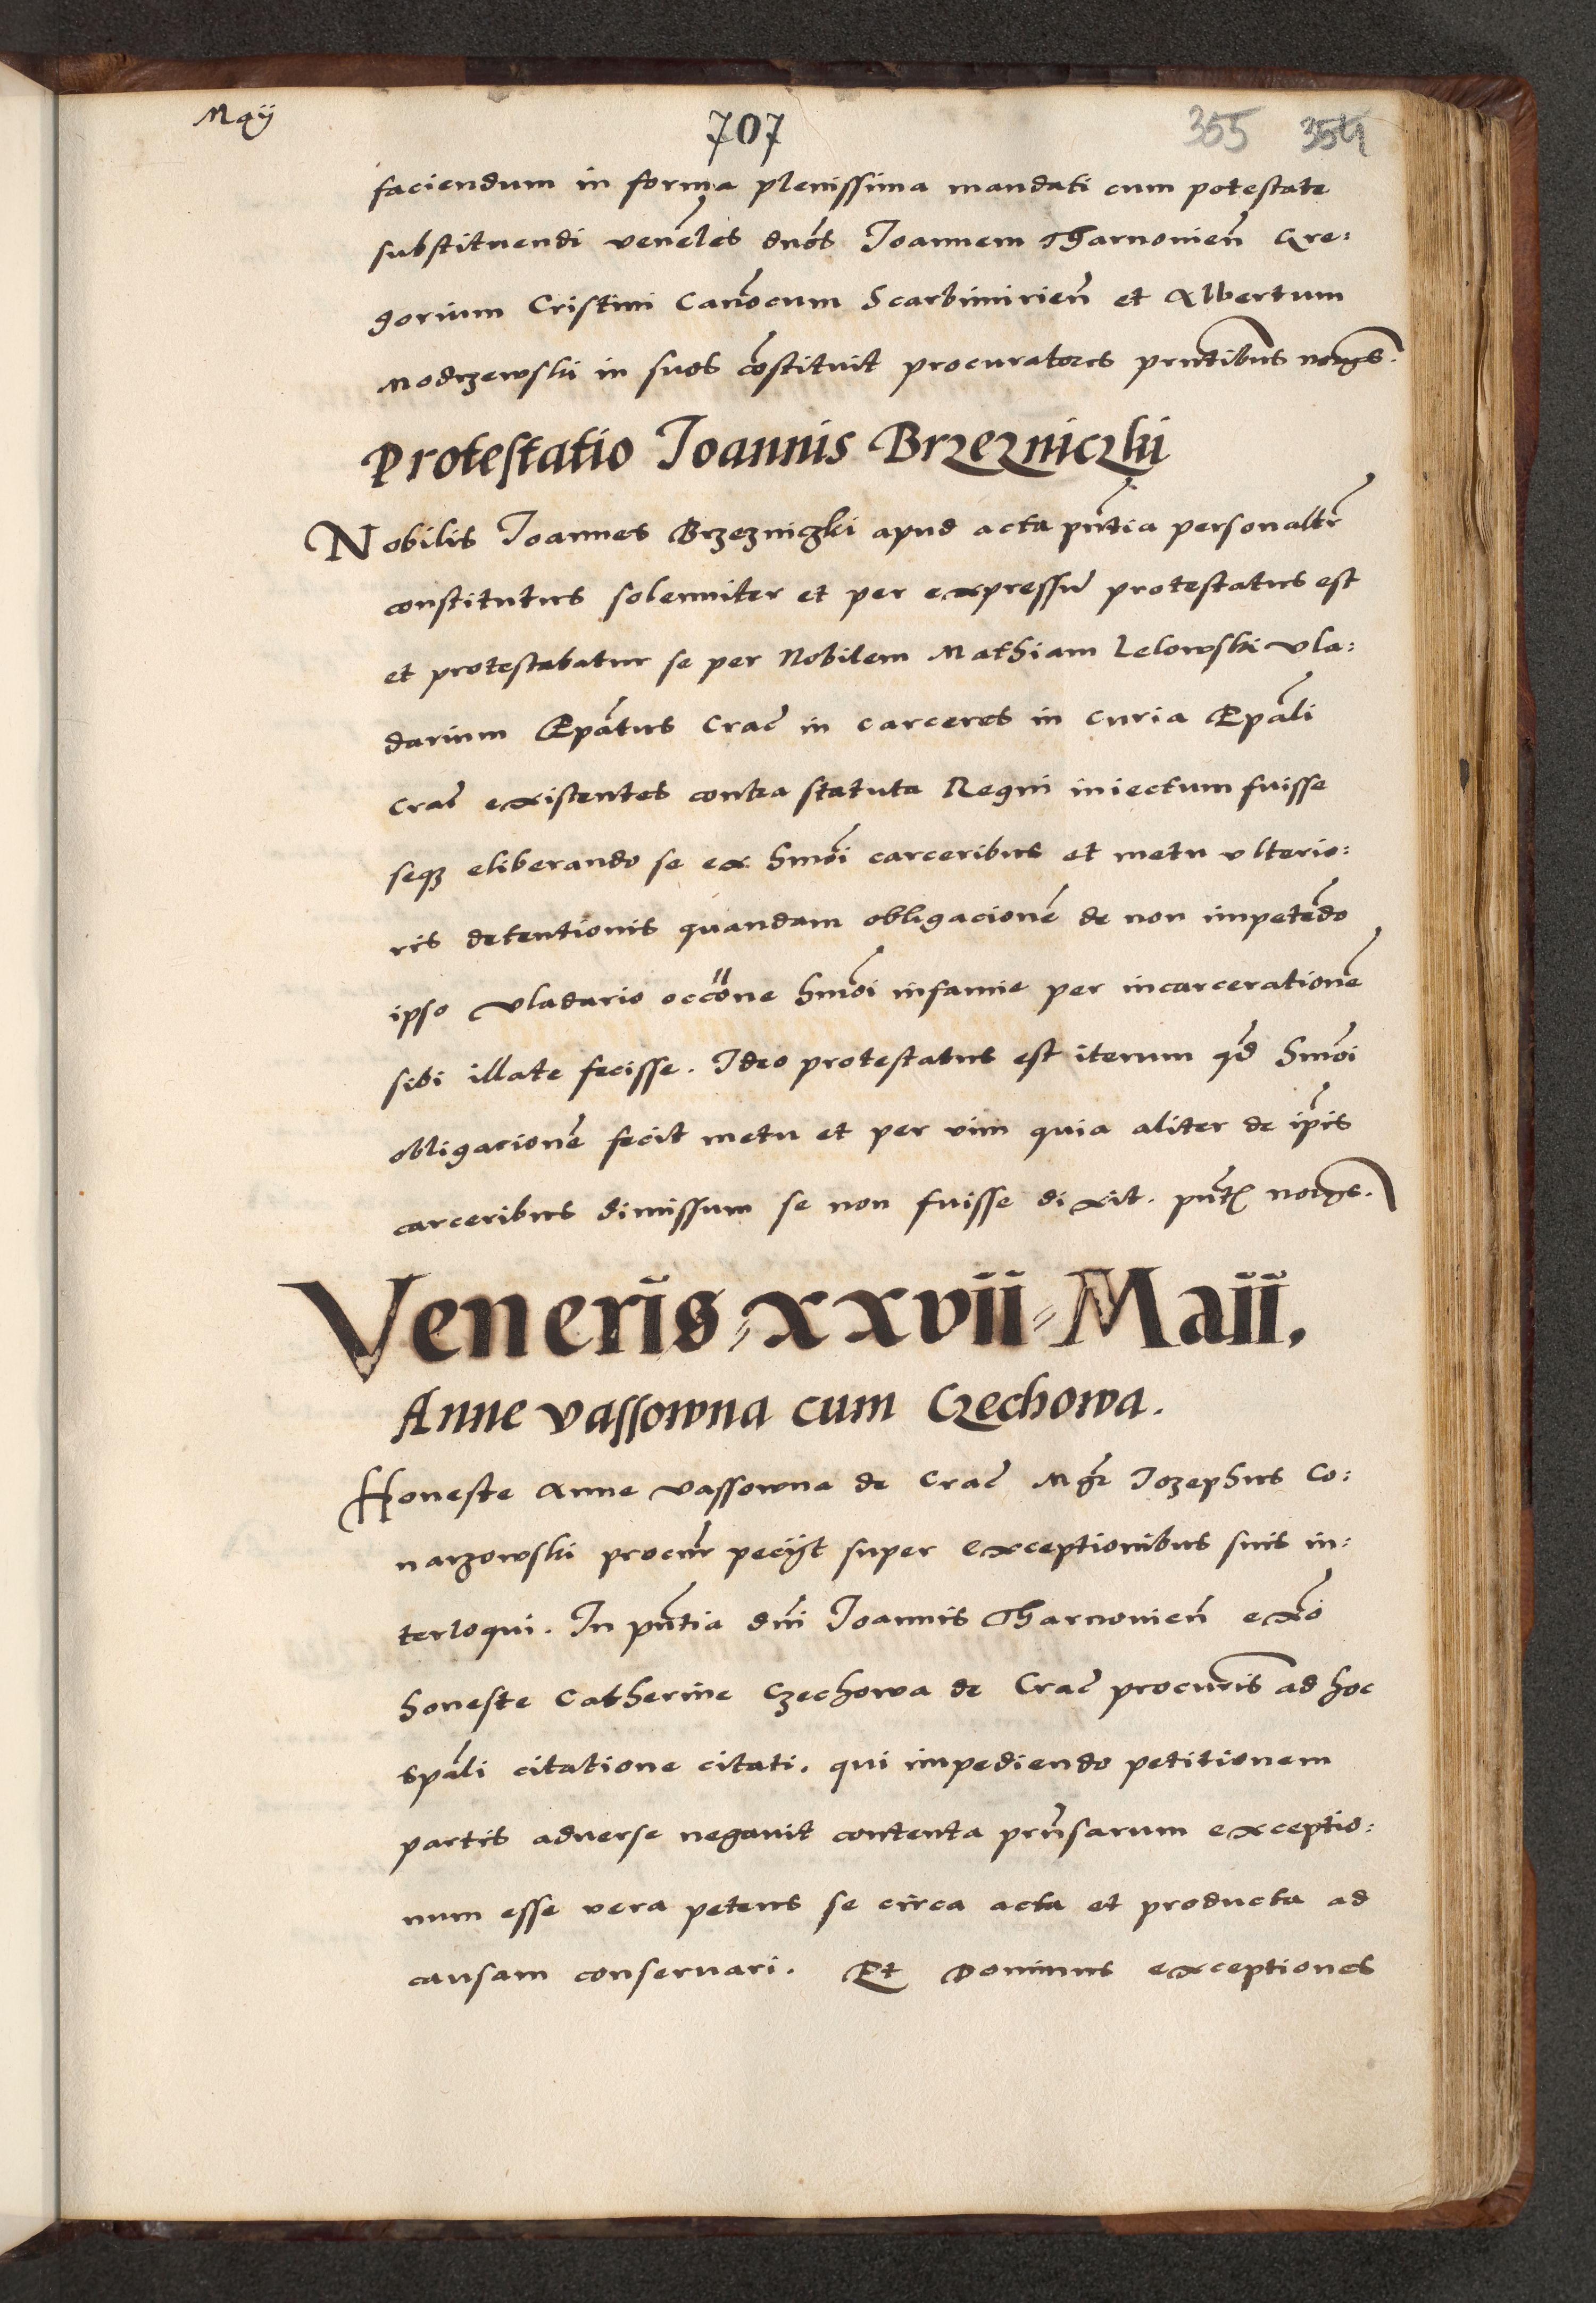 Maÿ
707
355 354
faciendum in forma plenissima mandati cum potestate
substituendi venẽles dños Joannem Tharnovieñ Gre:
gorium Cristini Canõcum Scarbimirieñ et Albertum
Modrzewski in suos cõstituit procuratores pñtibus
Protestatio Joannis Brzezniczki
Nobilis Joannes Brzezniczki apud acta pñtia personaltr̃
constitutus solenniter et per expressũ protestatus est
et protestabatur se per Nobilem Mathiam Lelowski vla:
darium Ep̃atus Crac̃ in carceres in curia Ep̃ali
Crac̃ existentes contra statuta Regni iniectum fuisse
seqꝫ eliberando se ex hmõi carceribus et metu vlterio:
ris detentionis quandam obligacionẽ de non impetẽdo
ipso vladario occõne hmõi infamie per incarcerationẽ
sibi illate fecisse. Ideo protestatus est iterum qd̃ hmõi
obligacionẽ fecit metu et per vim quia aliter de ip̃is
carceribus dimissum se non fuisse dixit. pñt
Veneris xxvii Maii.
Anne vassowna cum Czechowa.
Honeste Anne vassowna de Crac̃ Mgr̃ Jozephus Co:
narzowski procur̃ pecijt super exceptionibus suis in:
terloqui. In pñtia dñi Joannis Tharnovieñ ex͠o
honeste Catherine Czechowa de Crac̃ procuris ad hoc
sp̃ali citatione citati. qui impediendo petitionem
partis adverse negavit contenta prñsarum exceptio:
num esse vera petens se circa acta et producta ad
causam conservari. Et Dominus exceptiones